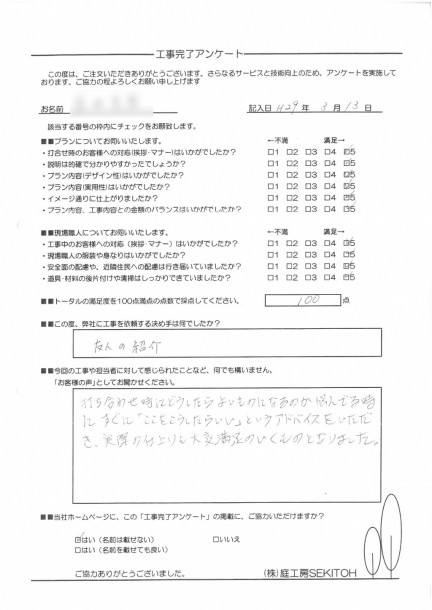 工事完了アンケート
この度は、ご注文いただきありがとうございます。さらなるサービスと技術向上のため、アンケートを実施して
おります。ご協力の程よろしくお願い申し上げます
お名前
記入日 H29 年 3 月 13 日
該当する番号の枠内にチェックをお願致します。
■■プランについてお伺いいたします。 ←不満 満足→
・打合せ時のお客様への対応(挨拶・マナー)はいかがでしたか? □1 □2 □3 □4 ☑5
・説明は的確で分かりやすかったでしょうか? □1 □2 □3 □4 ☑5
・プラン内容(デザイン性)はいかがでしたか? □1 □2 □3 □4 ☑5
・プラン内容(実用性)はいかがでしたか? □1 □2 □3 □4 ☑5
・イメージ通りに仕上がりましたか? □1 □2 □3 □4 ☑5
・プラン内容、工事内容との金額のバランスはいかがでしたか? □1 □2 □3 □4 ☑5
■■現場職人についてお伺いいたします。 ←不満 満足→
・工事中のお客様への対応(挨拶・マナー)はいかがでしたか? □1 □2 □3 □4 ☑5
・現場職人の服装や身なりはいかがでしたか? □1 □2 □3 □4 ☑5
・安全面の配慮や、近隣住民への配慮は行き届いていましたか? □1 □2 □3 □4 ☑5
・道具・材料の後片付けや清掃はしっかりできていましたか? □1 □2 □3 □4 ☑5
■■トータルの満足度を100点満点の点数で採点してください。 100 点
■■この度、弊社に工事を依頼する決め手は何でしたか?
友人の紹介
■■今回の工事や担当者に対して感じられたことなど、何でも構いません。
「お客様の声」としてお聞かせください。
打ち合わせ時にどうしたらよいものになるのか悩んでる時
にすぐに「ここをこうしたらいい」というアドバイスをいただ
き、実際の仕上りも大変満足のいくものとなりました。
■■当社ホームページに、この「工事完了アンケート」の掲載に、ご協力いただけますか?
☑はい(名前は載せない) □いいえ
□はい(名前を載せても良い)
ご協力ありがとうございました。
(株)庭工房SEKITOH